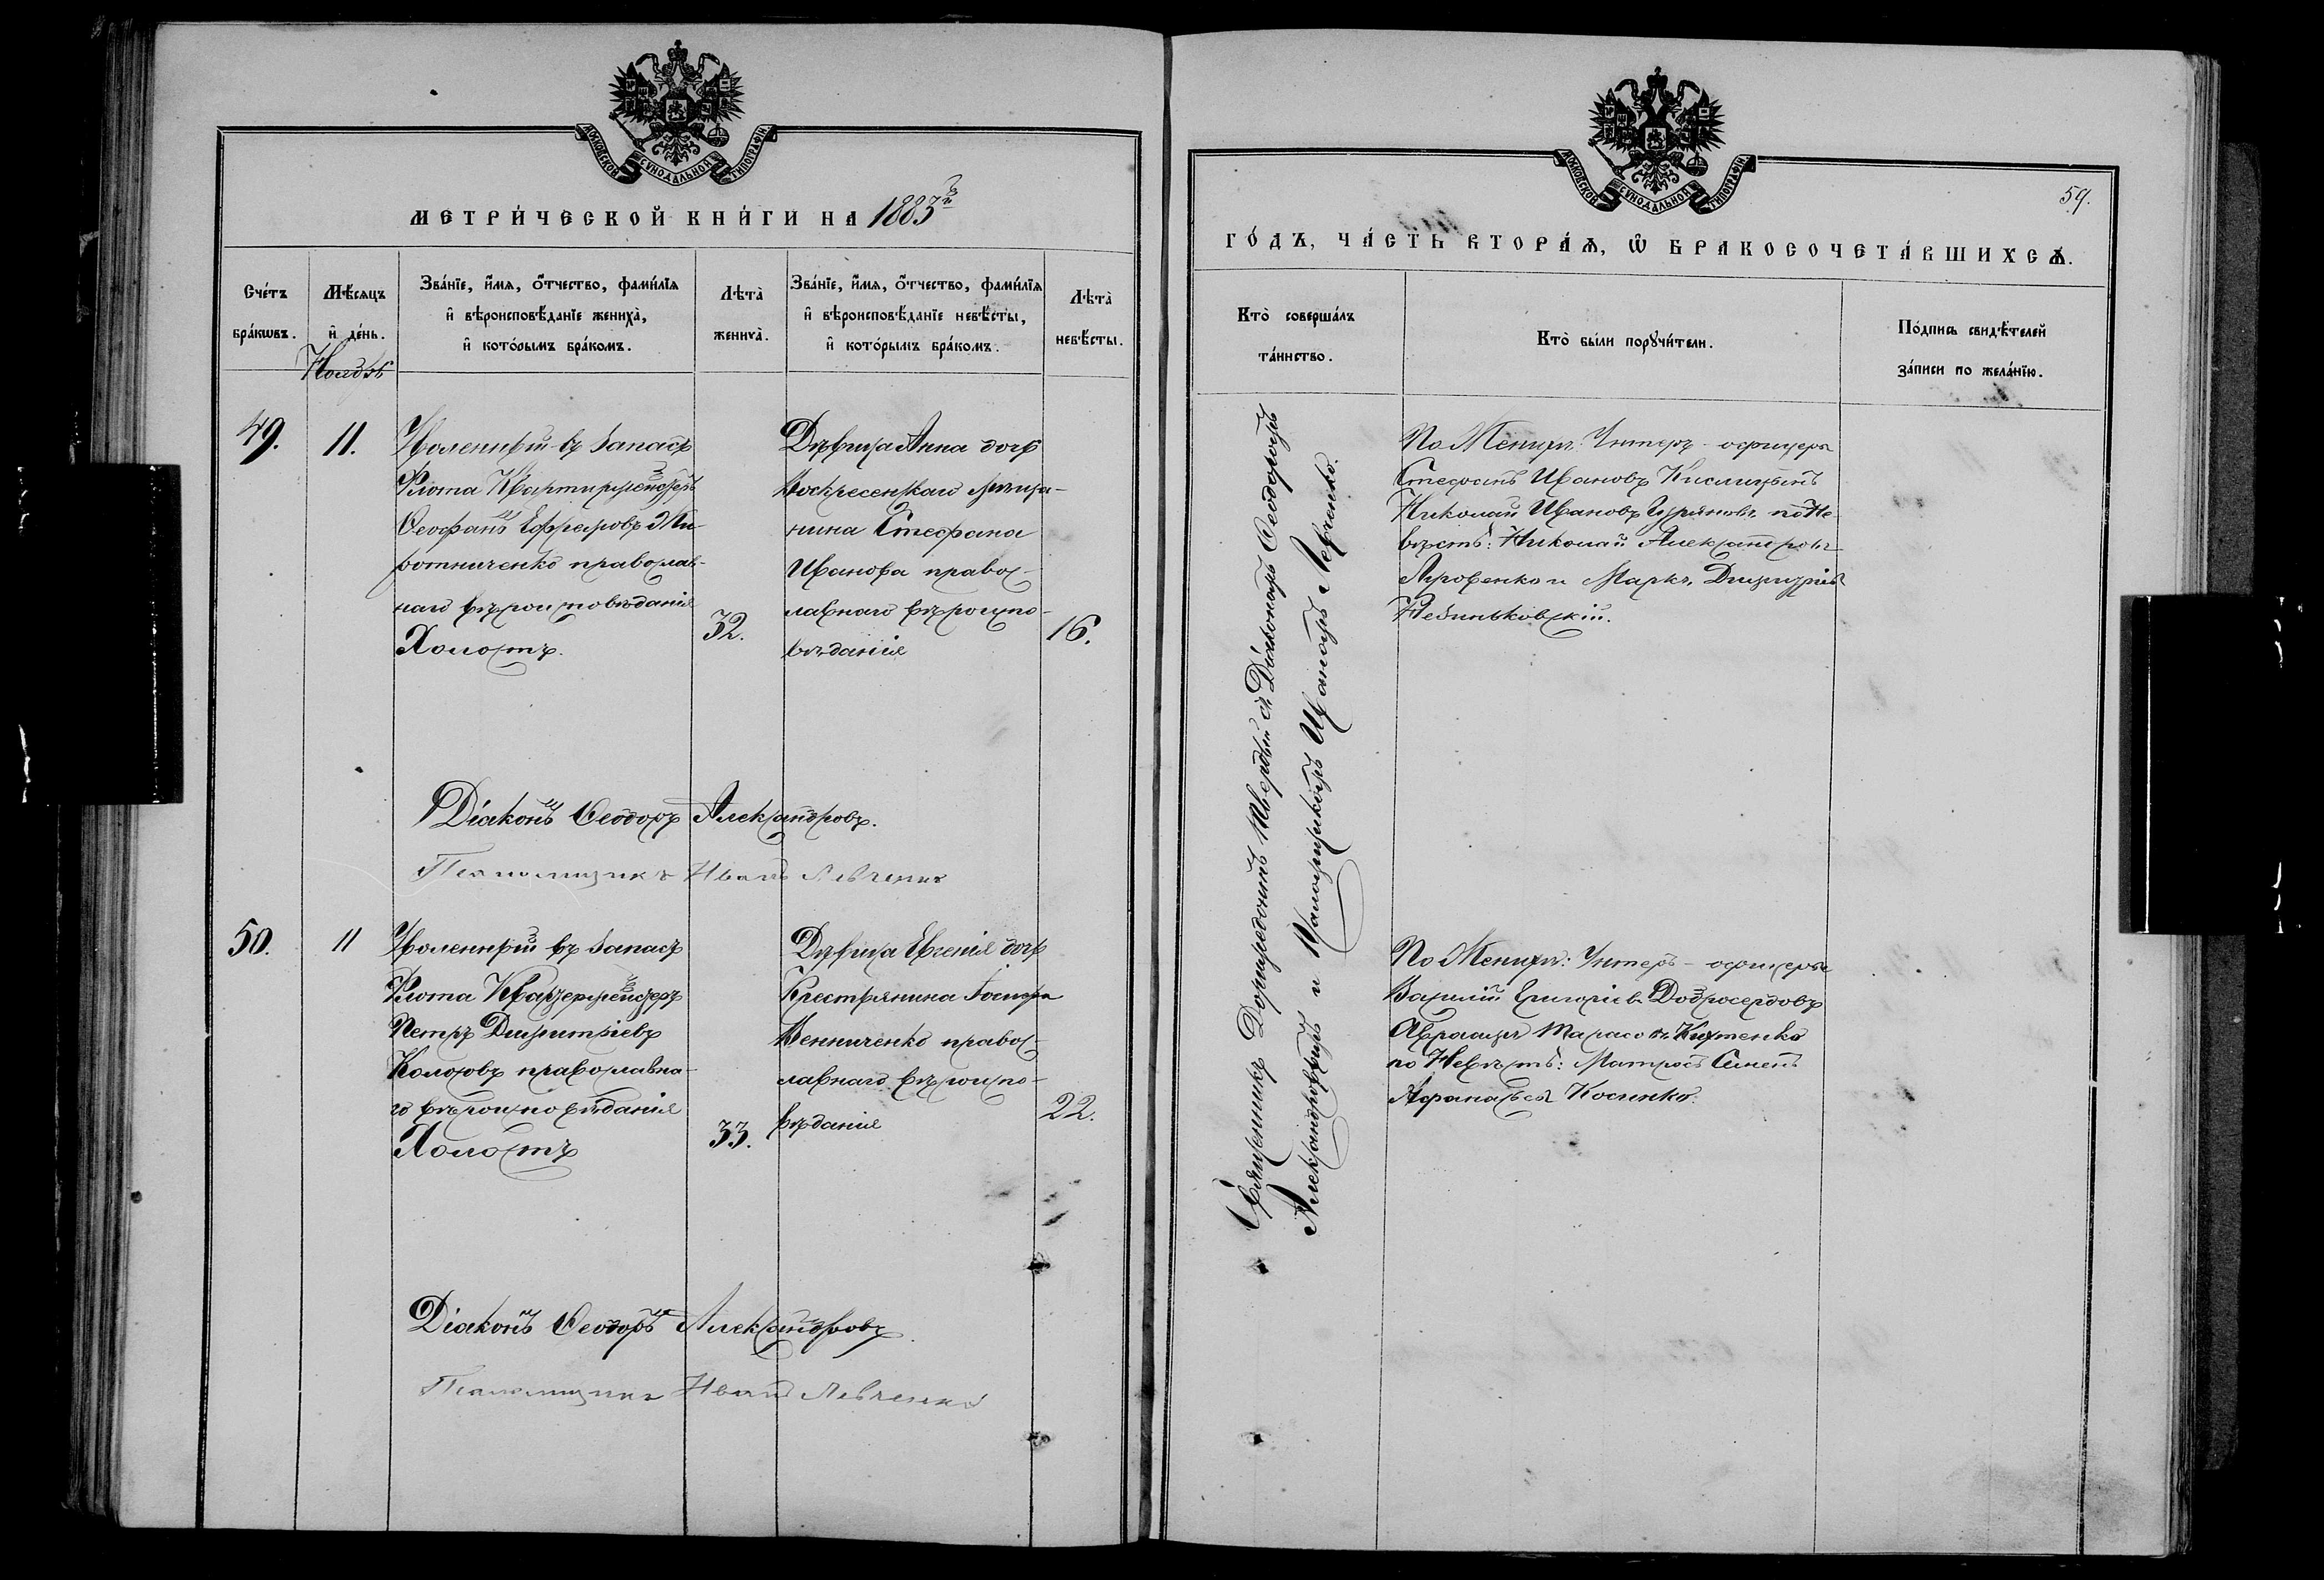 МОСКОВСКОЙ СУНОДАЛЬНОЙ ТИПОГРАФІИ
МЕТРИ́ЧЕСКОЙ КНИ́ГИ НА 1883й
Сче́тъ бра́кѡвъ.
Мѣ́сяцъ и҆ де́нь.
Зва́нїе, и҆́мѧ, ѻ҆́тчество, фами́лїѧ
и҆ вѣроисповѣ́данїе жениха̀,
и҆ кото́рымъ бра́комъ.
Лѣта̀ жениха̀.
Зва́нїе, и҆́мѧ, ѻ҆́тчество, фами́лїѧ
и҆ вѣроисповѣ́данїе невѣ́сты,
и҆ кото́рымъ бра́комъ.
Лѣта̀ невѣ́сты.
Ноябрь
49.
11.
Уволенный въ запасъ
Флота Квартирмейстеръ
Ѳеофанъ
православ-
наго вѣроисповѣданія
Холостъ.
32.
Дѣвица Анна дочь
Воскресенскаго мѣща-
нина Стефана
Иванова правос-
лавнаго вѣроиспо-
вѣданія
16.
Діаконъ Ѳеодоръ Александровъ.
Псаломщикъ Иванъ Левченко
50.
11
Уволенный въ запасъ
Флота Квартермейстеръ
Петръ Димитріевъ
православна-
го вѣроисповѣданія
Холостъ
33.
Дѣвица Евгенія дочь
Крестьянина
Венниченко правос-
лавнаго вѣроиспо-
вѣданія
22.
Діаконъ Ѳеодоръ Александровъ.
Псаломщикъ Иванъ Левченко
МОСКОВСКОЙ СУНОДАЛЬНОЙ ТИПОГРАФІИ
59.
ГО́ДЪ, ЧА́СТЬ ВТОРА́Ѧ, Ѽ БРАКОСОЧЕТА́ВШИХСѦ.
Кто̀ соверша́лъ та́инство.
Кто̀ бы́ли порꙋчи́тели.
По́дпись свидѣ́телей за́писи по жела́нїю.
Священникъ Доримедонтъ Твердый съ Діакономъ Ѳеодоромъ
Александровымъ и Псаломщикомъ Иваномъ Левченко.
По Женихѣ: Унтеръ-офицеры
Стефанъ Ивановъ Кислицынъ
Николай Ивановъ по Не-
вѣстѣ: Николай Александровъ
и Маркъ Димитріевъ
По Женихѣ: Унтеръ-офицеры
Василій Григоріевъ Добросердовъ
Авраамъ Тарасовъ
по Невѣстѣ: Матросъ Семенъ
Афанасьевъ Косенко.